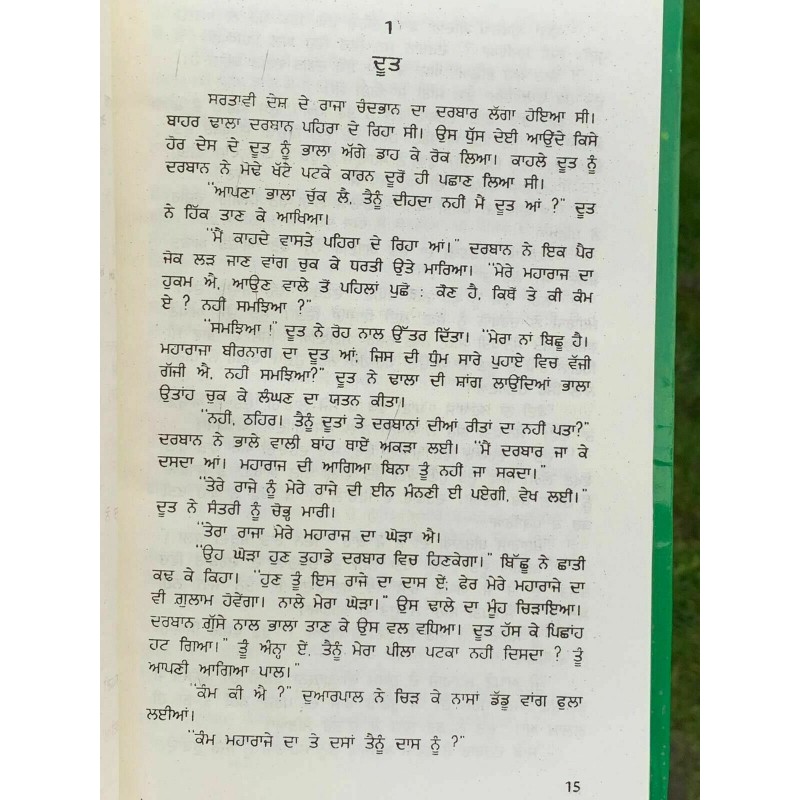 1
ਦੂਤ
ਸਰਤਾਵੀ ਦੇਸ਼ ਦੇ ਰਾਜਾ ਚੰਦਭਾਨ ਦਾ ਦਰਬਾਰ ਲੱਗਾ ਹੋਇਆ ਸੀ।
ਬਾਹਰ ਢਾਲਾ ਦਰਬਾਨ ਪਹਿਰਾ ਦੇ ਰਿਹਾ ਸੀ। ਉਸ ਧੁੱਸ ਦੇਈ ਆਉਂਦੇ ਕਿਸੇ
ਹੋਰ ਦੇਸ ਦੇ ਦੂਤ ਨੂੰ ਭਾਲਾ ਅੱਗੇ ਡਾਹ ਕੇ ਰੋਕ ਲਿਆ। ਕਾਹਲੇ ਦੂਤ ਨੂੰ
ਦਰਬਾਨ ਨੇ ਮੋਢੇ ਖੱਟੇ ਪਟਕੇ ਕਾਰਨ ਦੂਰੋਂ ਹੀ ਪਛਾਣ ਲਿਆ ਸੀ।
"ਆਪਣਾ ਭਾਲਾ ਚੁੱਕ ਲੈ, ਤੈਨੂੰ ਦੀਹਦਾ ਨਹੀਂ ਮੈਂ ਦੂਤ ਆਂ ?" ਦੂਤ
ਨੇ ਹਿੱਕ ਤਾਣ ਕੇ ਆਖਿਆ।
"ਮੈਂ ਕਾਹਦੇ ਵਾਸਤੇ ਪਹਿਰਾ ਦੇ ਰਿਹਾ ਆਂ।" ਦਰਬਾਨ ਨੇ ਇਕ ਪੈਰ
ਜੋਕ ਲੜ ਜਾਣ ਵਾਂਗ ਚੁਕ ਕੇ ਧਰਤੀ ਉਤੇ ਮਾਰਿਆ। "ਮੇਰੇ ਮਹਾਰਾਜ ਦਾ
ਹੁਕਮ ਐ, ਆਉਣ ਵਾਲੇ ਤੋਂ ਪਹਿਲਾਂ ਪੁਛੋ : ਕੌਣ ਹੈ, ਕਿਥੋਂ ਤੇ ਕੀ ਕੰਮ
ਏ ? ਨਹੀਂ ਸਮਝਿਆ ?"
"ਸਮਝਿਆ !" ਦੂਤ ਨੇ ਰੋਹ ਨਾਲ ਉੱਤਰ ਦਿੱਤਾ। "ਮੇਰਾ ਨਾਂ ਬਿਛੂ ਹੈ।
ਮਹਾਰਾਜਾ ਬੀਰਨਾਗ ਦਾ ਦੂਤ ਆਂ; ਜਿਸ ਦੀ ਧੁੰਮ ਸਾਰੇ ਪੁਹਾਏ ਵਿਚ ਵੱਜੀ
ਗੱਜੀ ਐ, ਨਹੀਂ ਸਮਝਿਆ?" ਦੂਤ ਨੇ ਢਾਲਾ ਦੀ ਸ਼ਾਂਗ ਲਾਉਂਦਿਆਂ ਭਾਲਾ
ਉਤਾਂਹ ਚੁਕ ਕੇ ਲੰਘਣ ਦਾ ਯਤਨ ਕੀਤਾ।
"ਨਹੀਂ, ਠਹਿਰ। ਤੈਨੂੰ ਦੂਤਾਂ ਤੇ ਦਰਬਾਨਾਂ ਦੀਆਂ ਰੀਤਾਂ ਦਾ ਨਹੀਂ ਪਤਾ?"
ਦਰਬਾਨ ਨੇ ਭਾਲੇ ਵਾਲੀ ਬਾਂਹ ਥਾਏਂ ਅਕੜਾ ਲਈ। "ਮੈਂ ਦਰਬਾਰ ਜਾ ਕੇ
ਦਸਦਾ ਆਂ। ਮਹਾਰਾਜ ਦੀ ਆਗਿਆ ਬਿਨਾ ਤੂੰ ਨਹੀਂ ਜਾ ਸਕਦਾ।"
"ਤੇਰੇ ਰਾਜੇ ਨੂੰ ਮੇਰੇ ਰਾਜੇ ਦੀ ਈਨ ਮੰਨਣੀ ਈ ਪਏਗੀ, ਵੇਖ ਲਈ।"
ਦੂਤ ਨੇ ਸੰਤਰੀ ਨੂੰ ਚੋਭ੍ਹ ਮਾਰੀ।
"ਤੇਰਾ ਰਾਜਾ ਮੇਰੇ ਮਹਾਰਾਜ ਦਾ ਘੋੜਾ ਐ।
"ਉਹ ਘੋੜਾ ਹੁਣ ਤੁਹਾਡੇ ਦਰਬਾਰ ਵਿਚ ਹਿਣਕੇਗਾ।" ਬਿੱਛੂ ਨੇ ਛਾਤੀ
ਕਢ ਕੇ ਕਿਹਾ। "ਹੁਣ ਤੂੰ ਇਸ ਰਾਜੇ ਦਾ ਦਾਸ ਏਂ; ਫੇਰ ਮੇਰੇ ਮਹਾਰਾਜੇ ਦਾ
ਵੀ ਗ਼ੁਲਾਮ ਹੋਵੇਂਗਾ। ਨਾਲੇ ਮੇਰਾ ਘੋੜਾ।" ਉਸ ਢਾਲੇ ਦਾ ਮੂੰਹ ਚਿੜਾਇਆ।
ਦਰਬਾਨ ਗੁੱਸੇ ਨਾਲ ਭਾਲਾ ਤਾਣ ਕੇ ਉਸ ਵਲ ਵਧਿਆ। ਦੂਤ ਹੱਸ ਕੇ ਪਿਛਾਂਹ
ਹਟ ਗਿਆ।" ਤੂੰ ਅੰਨ੍ਹਾ ਏਂ, ਤੈਨੂੰ ਮੇਰਾ ਪੀਲਾ ਪਟਕਾ ਨਹੀਂ ਦਿਸਦਾ ? ਤੂੰ
ਆਪਣੀ ਆਗਿਆ ਪਾਲ।"
"ਕੰਮ ਕੀ ਐ ?" ਦੁਆਰਪਾਲ ਨੇ ਚਿੜ ਕੇ ਨਾਸਾਂ ਡੱਡੂ ਵਾਂਗ ਫੁਲਾ
ਲਈਆਂ।
"ਕੰਮ ਮਹਾਰਾਜੇ ਦਾ ਤੇ ਦਸਾਂ ਤੈਨੂੰ ਦਾਸ ਨੂੰ ?"
15